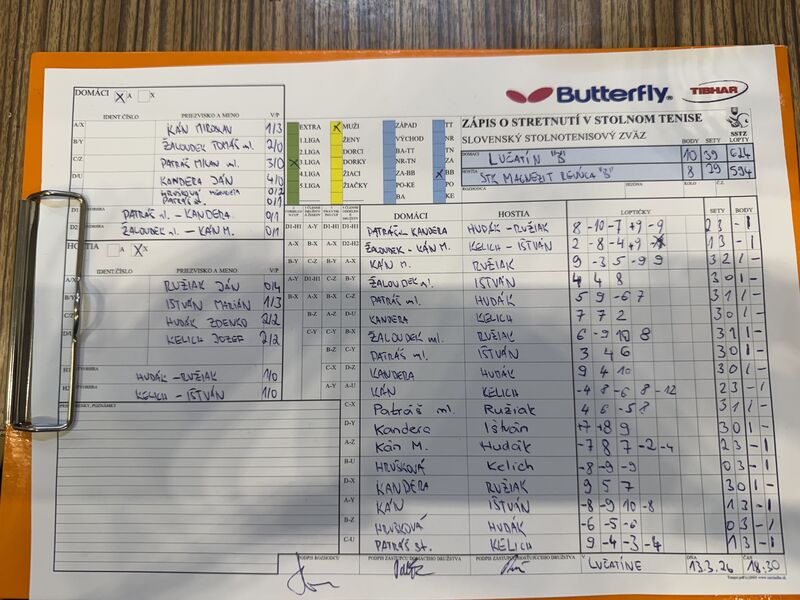 Butterfly
TIBHAR
DOMÁCI X A X
IDENT.ČÍSLO PRIEZVISKO A MENO V/P
A/X KÁN MIROSLAV 1/3
B/Y ŽALOUDEK TOMÁŠ ml. 2/0
C/Z PATRÁŠ MILAN ml. 3/0
D/U KANDERA JÁN 4/0
HRUŠKOVÁ 0/2
PATRÁŠ st. 0/1
D1 PATRÁŠ ml. - KANDERA 0/1
D2 ŽALOUDEK ml. - KÁN M. 0/1
HOSTIA A X X
IDENT.ČÍSLO PRIEZVISKO A MENO V/P
A/X RUŽIAK JÁN 0/4
B/Y IŠTVÁN MARIÁN 1/3
C/Z HUDÁK ZDENKO 2/2
D/U KELICH JOZEF 2/2
HUDÁK - RUŽIAK 1/0
KELICH - IŠTVÁN 1/0
PRIPOMIENKY, POZNÁMKY
EXTRA X MUŽI ZÁPAD TT
1.LIGA ŽENY VÝCHOD NR
2.LIGA DORCI BA-TT TN
X 3.LIGA DORKY NR-TN ZA
4.LIGA ŽIACI ZA-BB X BB
5.LIGA ŽIAČKY PO-KE PO
BA KE
ZÁPIS O STRETNUTÍ V STOLNOM TENISE
SLOVENSKÝ STOLNOTENISOVÝ ZVÄZ
SSTZ
BODY SETY LOPTY
DOMÁCI LUČATÍN "B" 10 39 624
HOSTIA STK MAGNEZIT REVÚCA "B" 8 29 594
ROZHODCA SEZÓNA KOLO Č.Z.
DOMÁCI HOSTIA LOPTIČKY SETY BODY
D1-H1 A-Y D1-H1 D1-H1 PATRÁŠ ml. KANDERA HUDÁK - RUŽIAK 8 -10 -7 +9 -9 2 3 - 1
A-X B-X A-X D2-H2 ŽALOUDEK - KÁN M. KELICH - IŠTVÁN 2 -8 -4 -9 1 3 - 1
B-Y C-Z B-Y A-X KÁN M. RUŽIAK 9 -3 5 -9 9 3 2 1 -
A-Y D1-H1 C-Z B-Y ŽALOUDEK ml. IŠTVÁN 4 4 8 3 0 1 -
B-X A-X B-X C-Z PATRÁŠ ml. HUDÁK 5 9 -6 7 3 1 1 -
B-Z A-Z D-U KANDERA KELICH 7 7 2 3 0 1 -
C-Y C-Y B-X ŽALOUDEK ml. RUŽIAK 6 -9 10 8 3 1 1 -
B-Z C-Y PATRÁŠ ml. IŠTVÁN 3 4 6 3 0 1 -
C-X D-Z KANDERA HUDÁK 9 4 10 3 0 1 -
A-Y A-U KÁN KELICH -4 8 -6 8 -12 2 3 - 1
C-X Patráš ml. Ružiak 4 6 -5 8 3 1 1 -
D-Y Kandera Ištván +7 +8 9 3 0 1 -
A-Z Kán M. Hudák -7 8 7 -2 -4 2 3 - 1
B-U HRUŠKOVÁ Kelich -8 -9 -9 0 3 - 1
D-X KANDERA RUŽIAK 9 5 7 3 0 1 -
A-Y KÁN IŠTVÁN -8 -9 10 -8 1 3 - 1
B-Z HRUŠKOVÁ HUDÁK -6 -5 -6 0 3 - 1
C-U PATRÁŠ st. KELICH 9 -4 -3 -4 1 3 - 1
PODPIS ROZHODCU PODPIS ZÁSTUPCU DOMÁCEHO DRUŽSTVA PODPIS ZÁSTUPCU HOSŤUJÚCEHO DRUŽSTVA V LUČATÍNE DŇA 13.3.26 ČAS 18:30